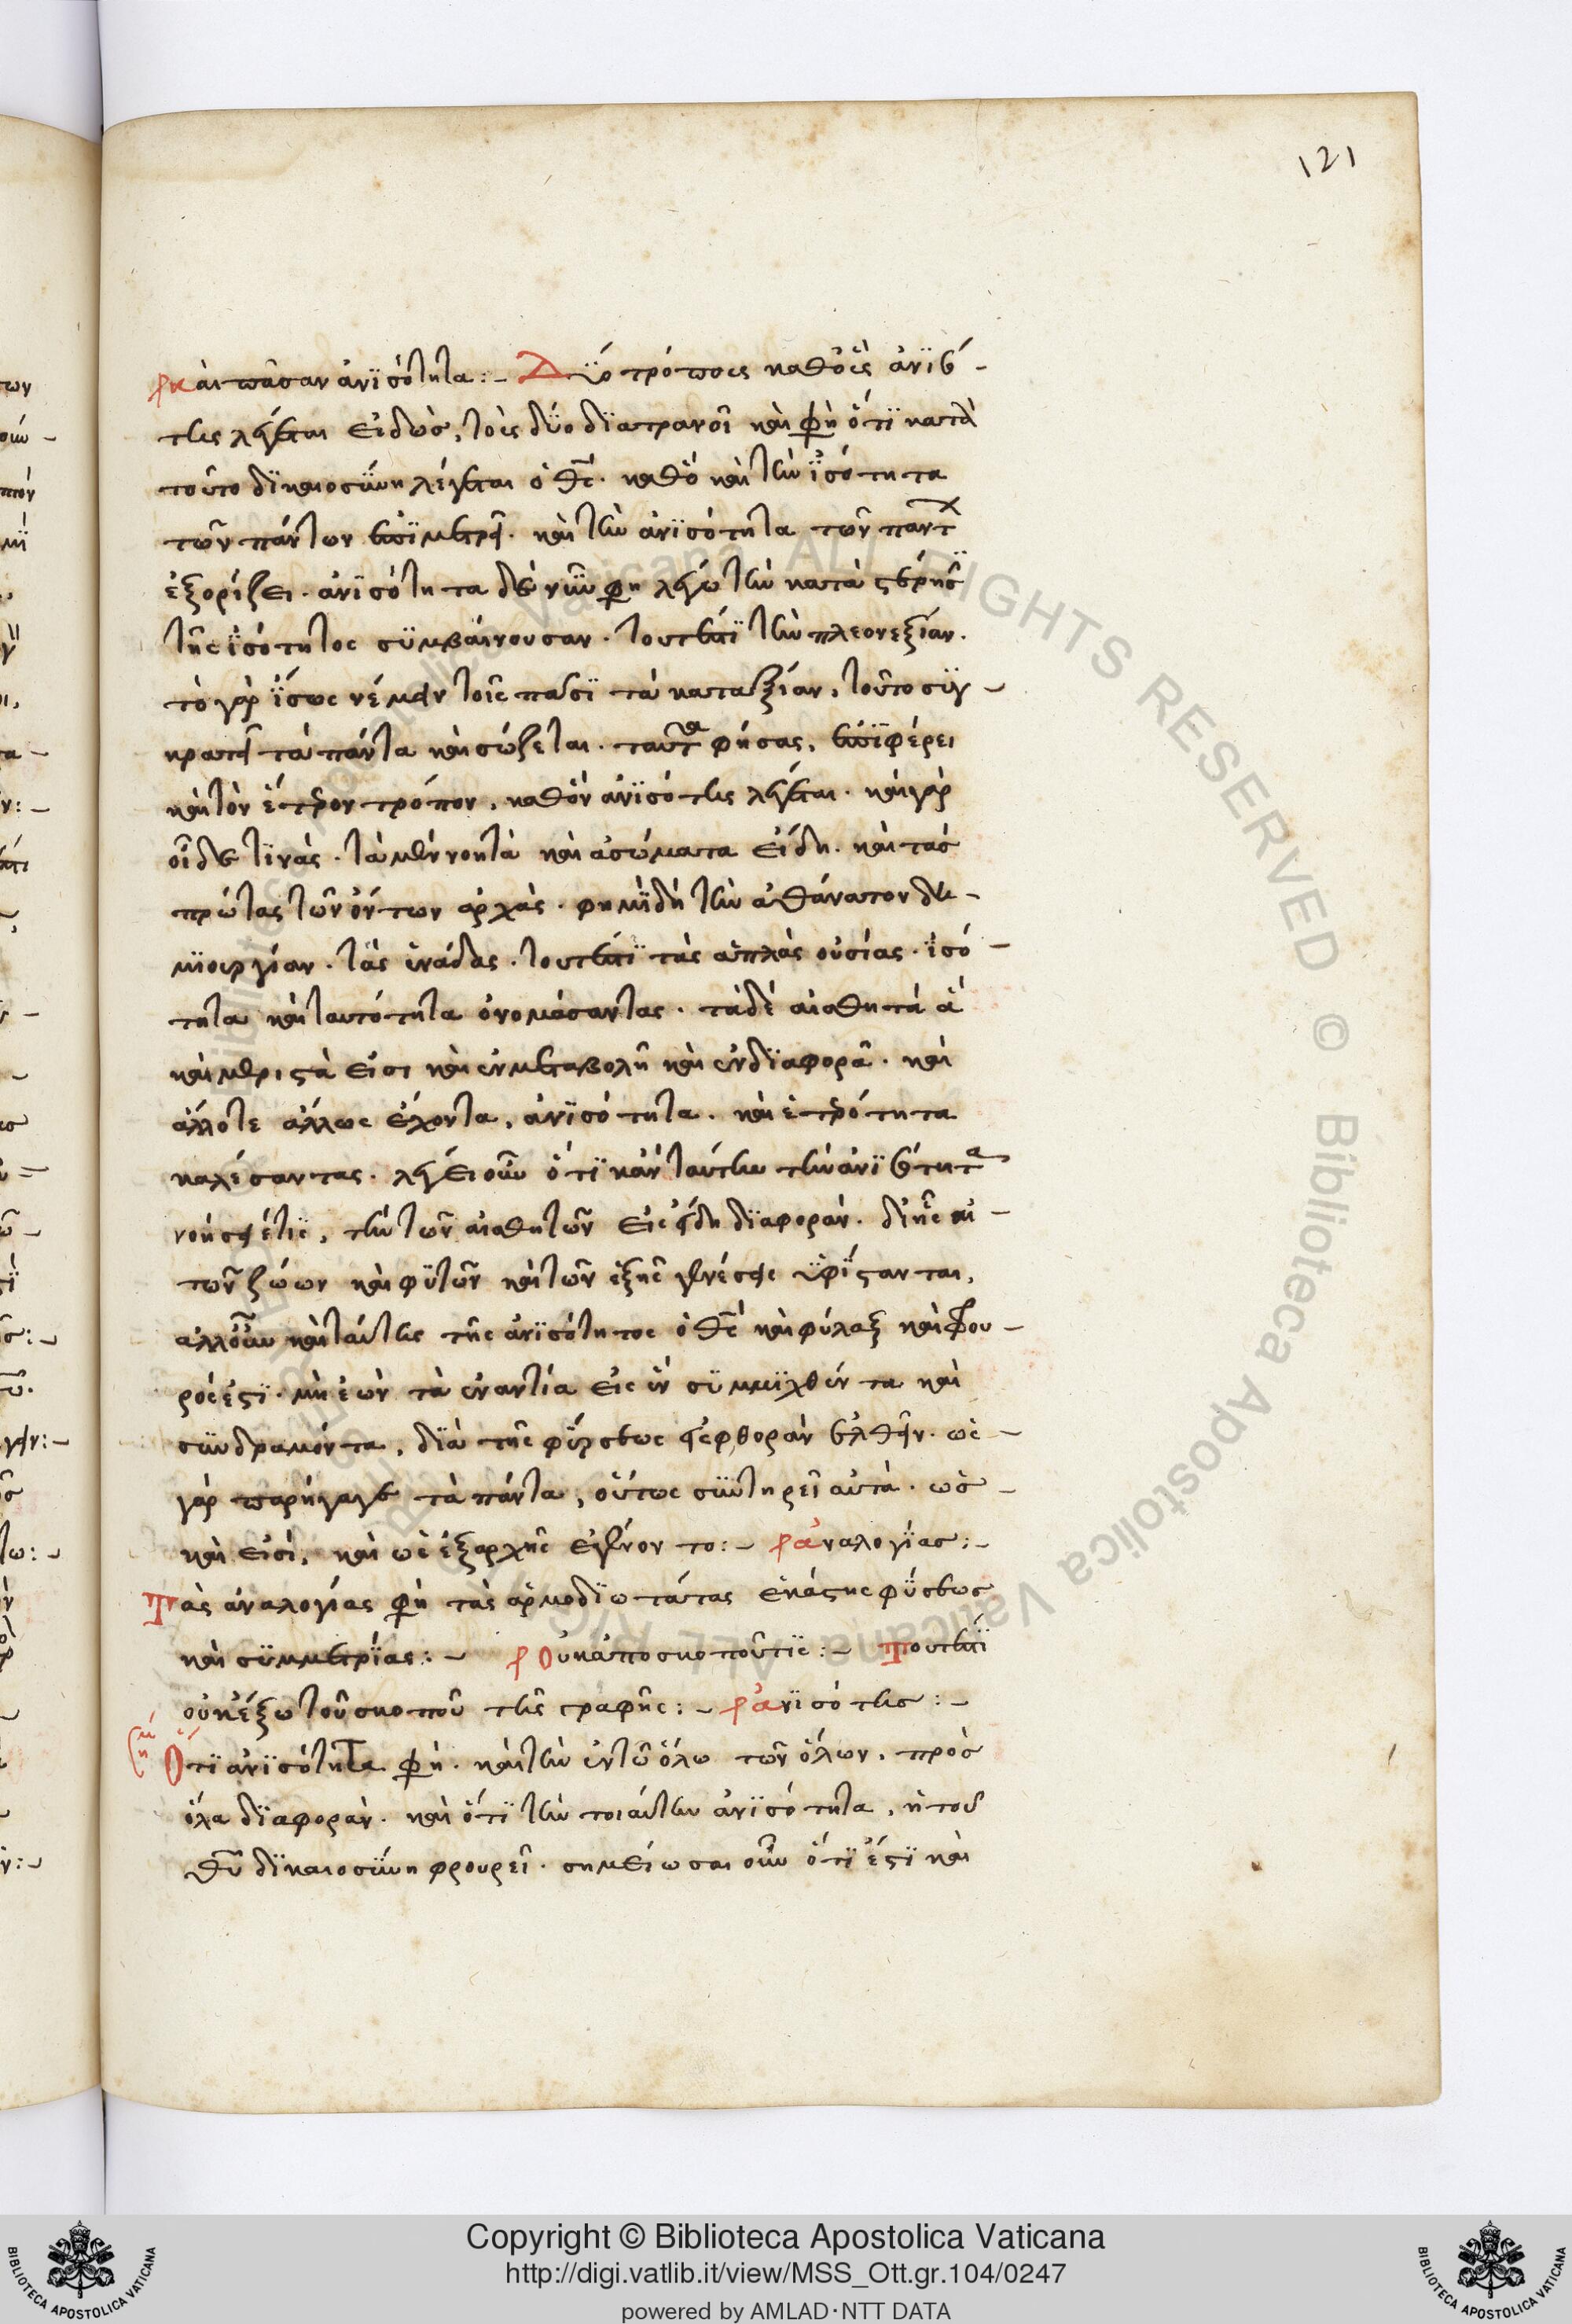 121
καὶ πᾶσαν ἀνϊσότητα:- Δύο τρόπους καθ' οὓς ἀνϊσό-
της λέγεται εἰδὼς, τοὺς δύο διατρανοῖ καὶ φησὶν ὅτι κατὰ
τοῦτο δϊκαιοσύνη λέγεται ὁ θς. καθὸ καὶ τὴν ἰσότητα
τῶν πάντων ἐπϊμετρεῖ. καὶ τὴν ἀνϊσότητα τῶν πάντ
ἐξορίζει. ἀνϊσότητα δὲ νῦν φησὶ λέγω τὴν κατὰ στέρησιν
τῆς ἰσότητος συμβαίνουσαν. τουτέστϊ τὴν πλεονεξίαν.
τὸ γὰρ ἴσως νέμειν τοῖς πᾶσϊ τὰ κατ' ἀξίαν, τοῦτο συγ-
κρατεῖ τὰ πάντα καὶ σώζεται. ταῦτα φήσας, ἐπϊφέρει
καὶ τὸν ἕτερον τρόπον, καθ' ὃν ἀνϊσότης λέγεται. καὶ γὰρ
οἶδέ τϊνὰς. τὰ μὲν νοητὰ καὶ ἀσώματα εἴδη. καὶ τὰς
πρώτας τῶν ὄντων ἀρχὰς. φημὶ δὴ τὴν ἀθάνατον δη-
μϊουργίαν. τὰς ἑνάδας. τουτέστϊ τὰς ἁπλὰς οὐσίας. ἰσό-
τητα καὶ ταυτότητα ὀνομάσαντας. τὰ δὲ αἰσθητὰ ἃ
καὶ μεριστὰ εἰσι καὶ ἐν μεταβολῇ καὶ ἐν δϊαφορᾷ. καὶ
ἄλλοτε ἄλλως ἔχοντα, ἀνϊσότητα. καὶ ἑτερότητα
καλέσαντας. λέγει οὖν ὅτϊ κἂν ταύτην τὴν ἀνϊσότητα
νοήσειέ τϊς, τὴν τῶν αἰσθητῶν εἰς εἴδη δϊαφορὰν. δι' ἧς αἱ
τῶν ζώων καὶ φυτῶν καὶ τῶν ἑξῆς γενέσεις ὑφίστανται,
ἀλλ' οὖν καὶ ταύτης τῆς ἀνϊσότητος ὁ θς καὶ φύλαξ καὶ φρου-
ρός ἐστϊ. μὴ ἐῶν τὰ ἐναντία εἰς ἓν συμμϊχθέντα καὶ
συνδραμόντα, διὰ τῆς φύρσεως εἰς φθορὰν ἐλθεῖν. ὡς
γὰρ παρήγαγε τὰ πάντα, οὕτως συντηρεῖ αὐτὰ. ὡς
καὶ εἰσὶ, καὶ ὡς ἐξαρχῆς ἐγένοντο:- ἀναλογίας:-
Τὰς ἀναλογίας φησὶ τὰς ἁρμοδϊωτάτας ἑκάστης φύσεως
καὶ συμμετρίας:- Οὐκ ἀπὸ σκοποῦ τϊς:- Τουτέστϊ
οὐκ ἔξω τοῦ σκοποῦ τῆς γραφῆς:- ἀνϊσότης:-
Ὅτϊ ἀνϊσότητα φησὶ. καὶ τὴν ἐν τῷ ὅλῳ τῶν ὅλων, πρὸς
ὅλα δϊαφορὰν. καὶ ὅτϊ τὴν τοιαύτην ἀνϊσότητα, ἡ τοῦ
θυ δϊκαιοσύνη φρουρεῖ. σημείωσαι οὖν ὅτϊ ἔστϊ καὶ
Copyright © Biblioteca Apostolica Vaticana
http://digi.vatlib.it/view/MSS_Ott.gr.104/0247
powered by AMLAD·NTT DATA
BIBLIOTECA APOSTOLICA VATICANA
BIBLIOTECA APOSTOLICA VATICANA